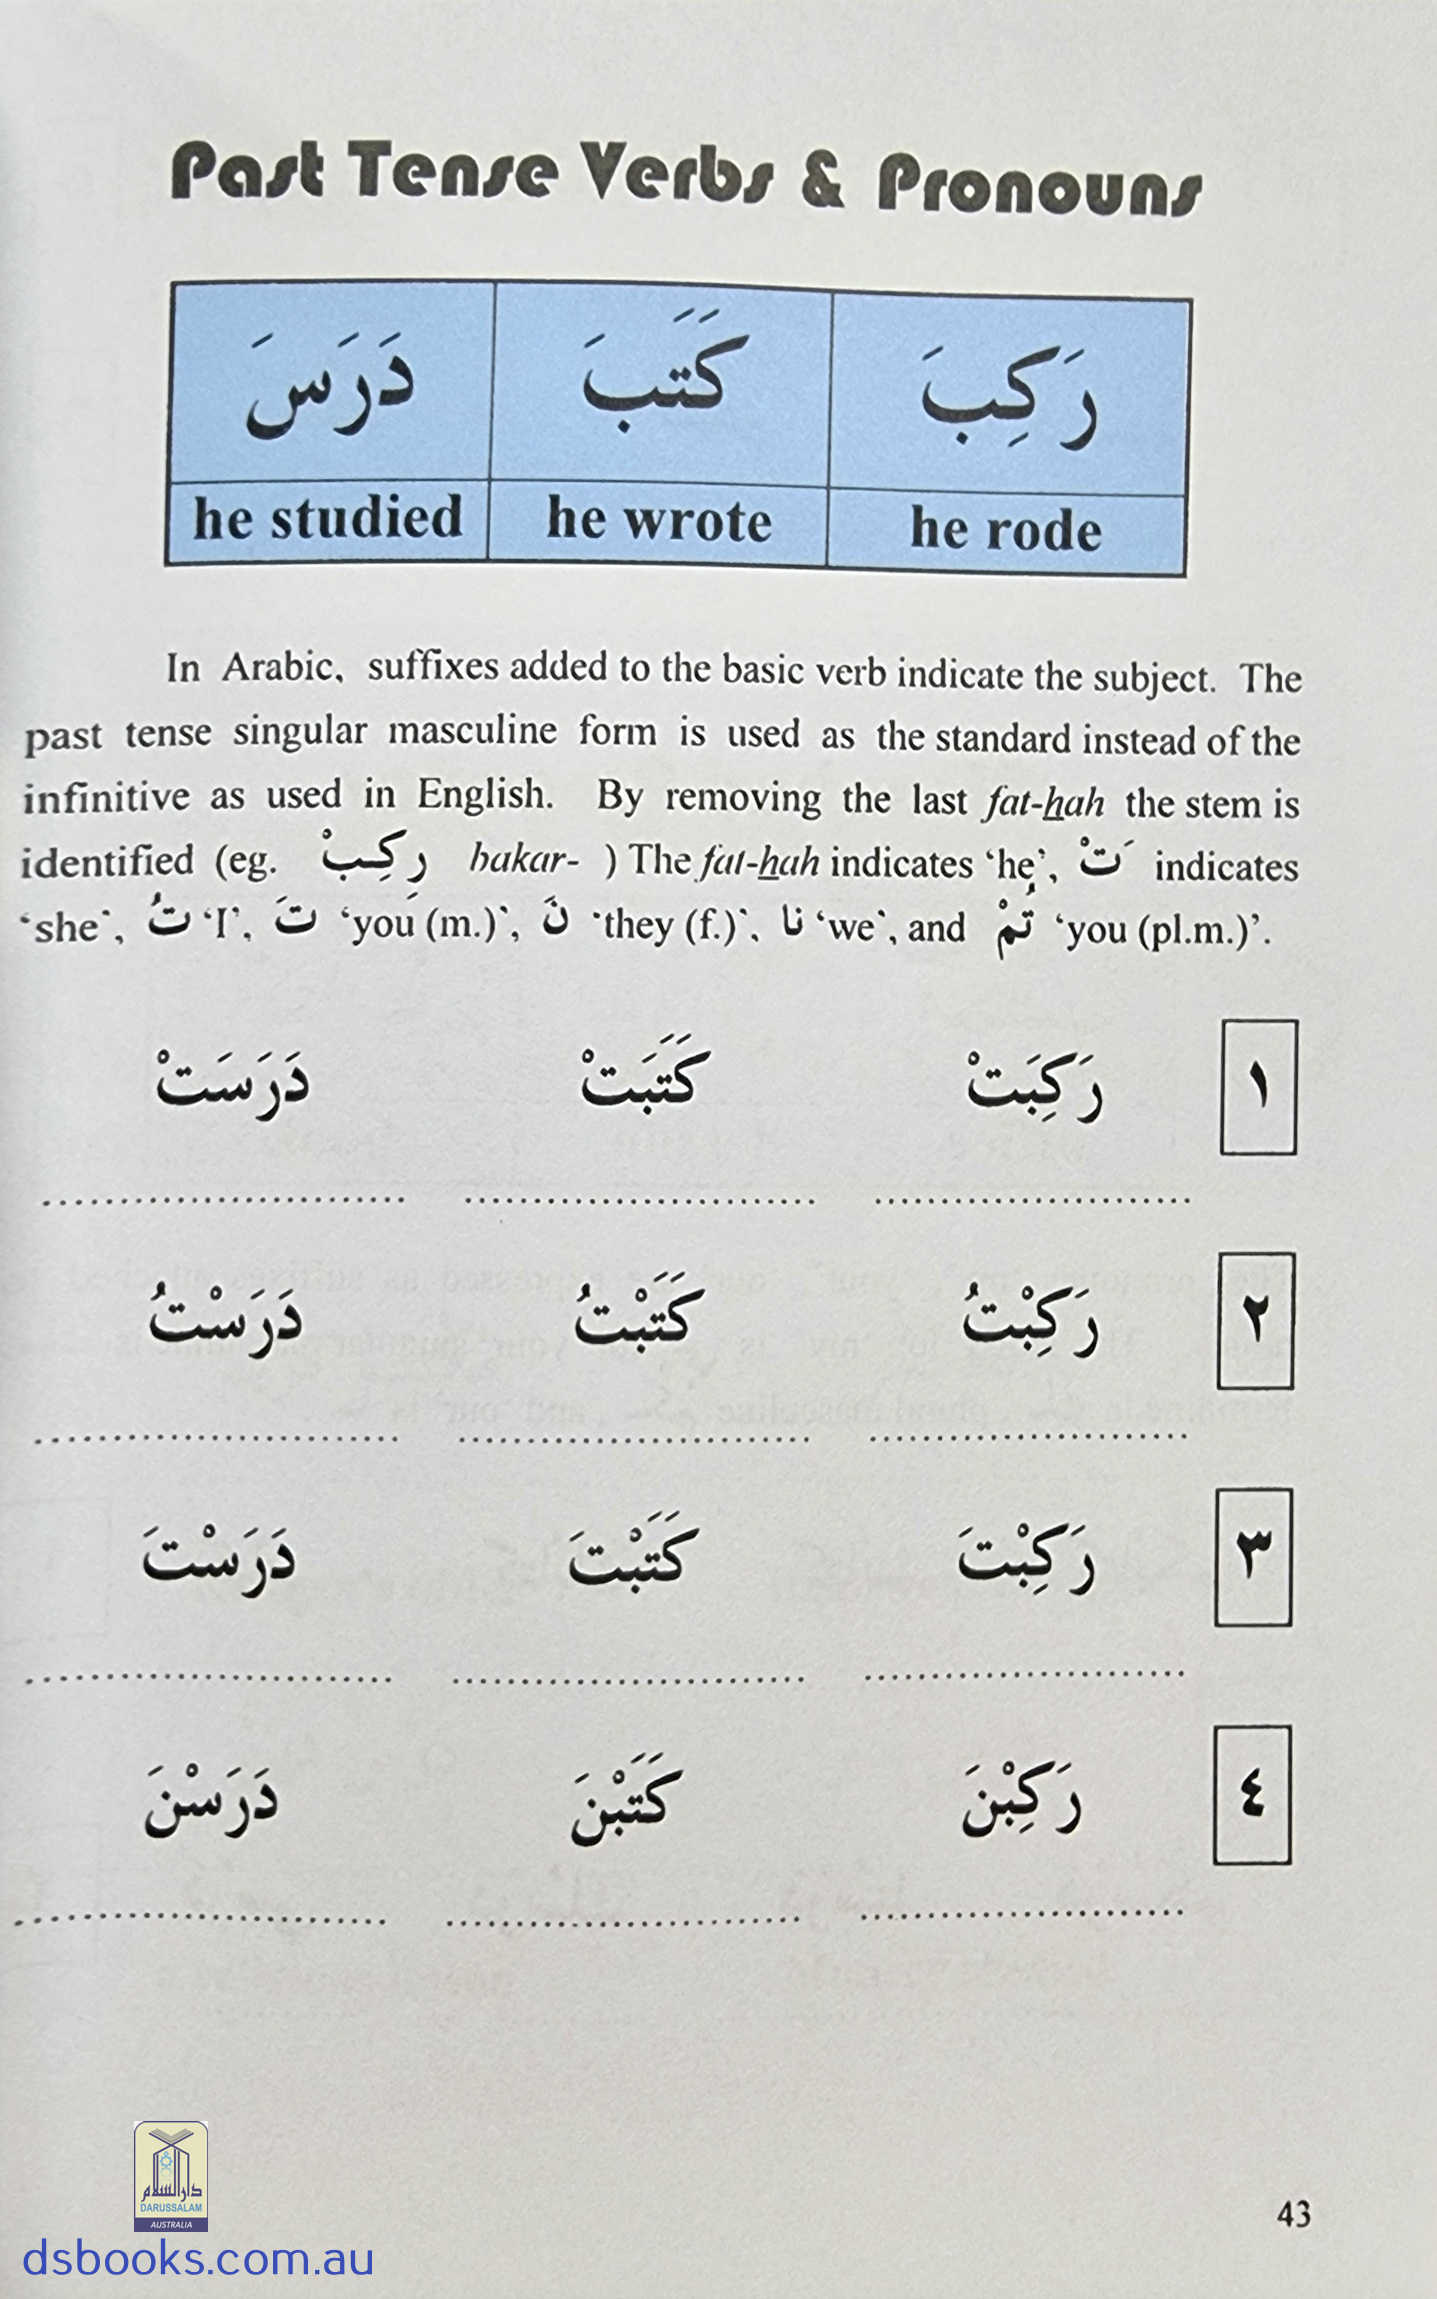 Past Tense Verbs & Pronouns
رَكِبَ كَتَبَ دَرَسَ
he studied he wrote he rode
In Arabic, suffixes added to the basic verb indicate the subject. The
past tense singular masculine form is used as the standard instead of the
infinitive as used in English. By removing the last fat-hah the stem is
identified (eg. رَكِبْ bakar- ) The fat-hah indicates ‘he’, َتْ indicates
‘she’, تُ ‘I’, تَ ‘you (m.)’, نَ ‘they (f.)’, نا ‘we’, and تُمْ ‘you (pl.m.)’.
١ رَكِبَتْ كَتَبَتْ دَرَسَتْ
٢ رَكِبْتُ كَتَبْتُ دَرَسْتُ
٣ رَكِبْتَ كَتَبْتَ دَرَسْتَ
٤ رَكِبْنَ كَتَبْنَ دَرَسْنَ
دارالسلام
DARUSSALAM
AUSTRALIA
43
dsbooks.com.au